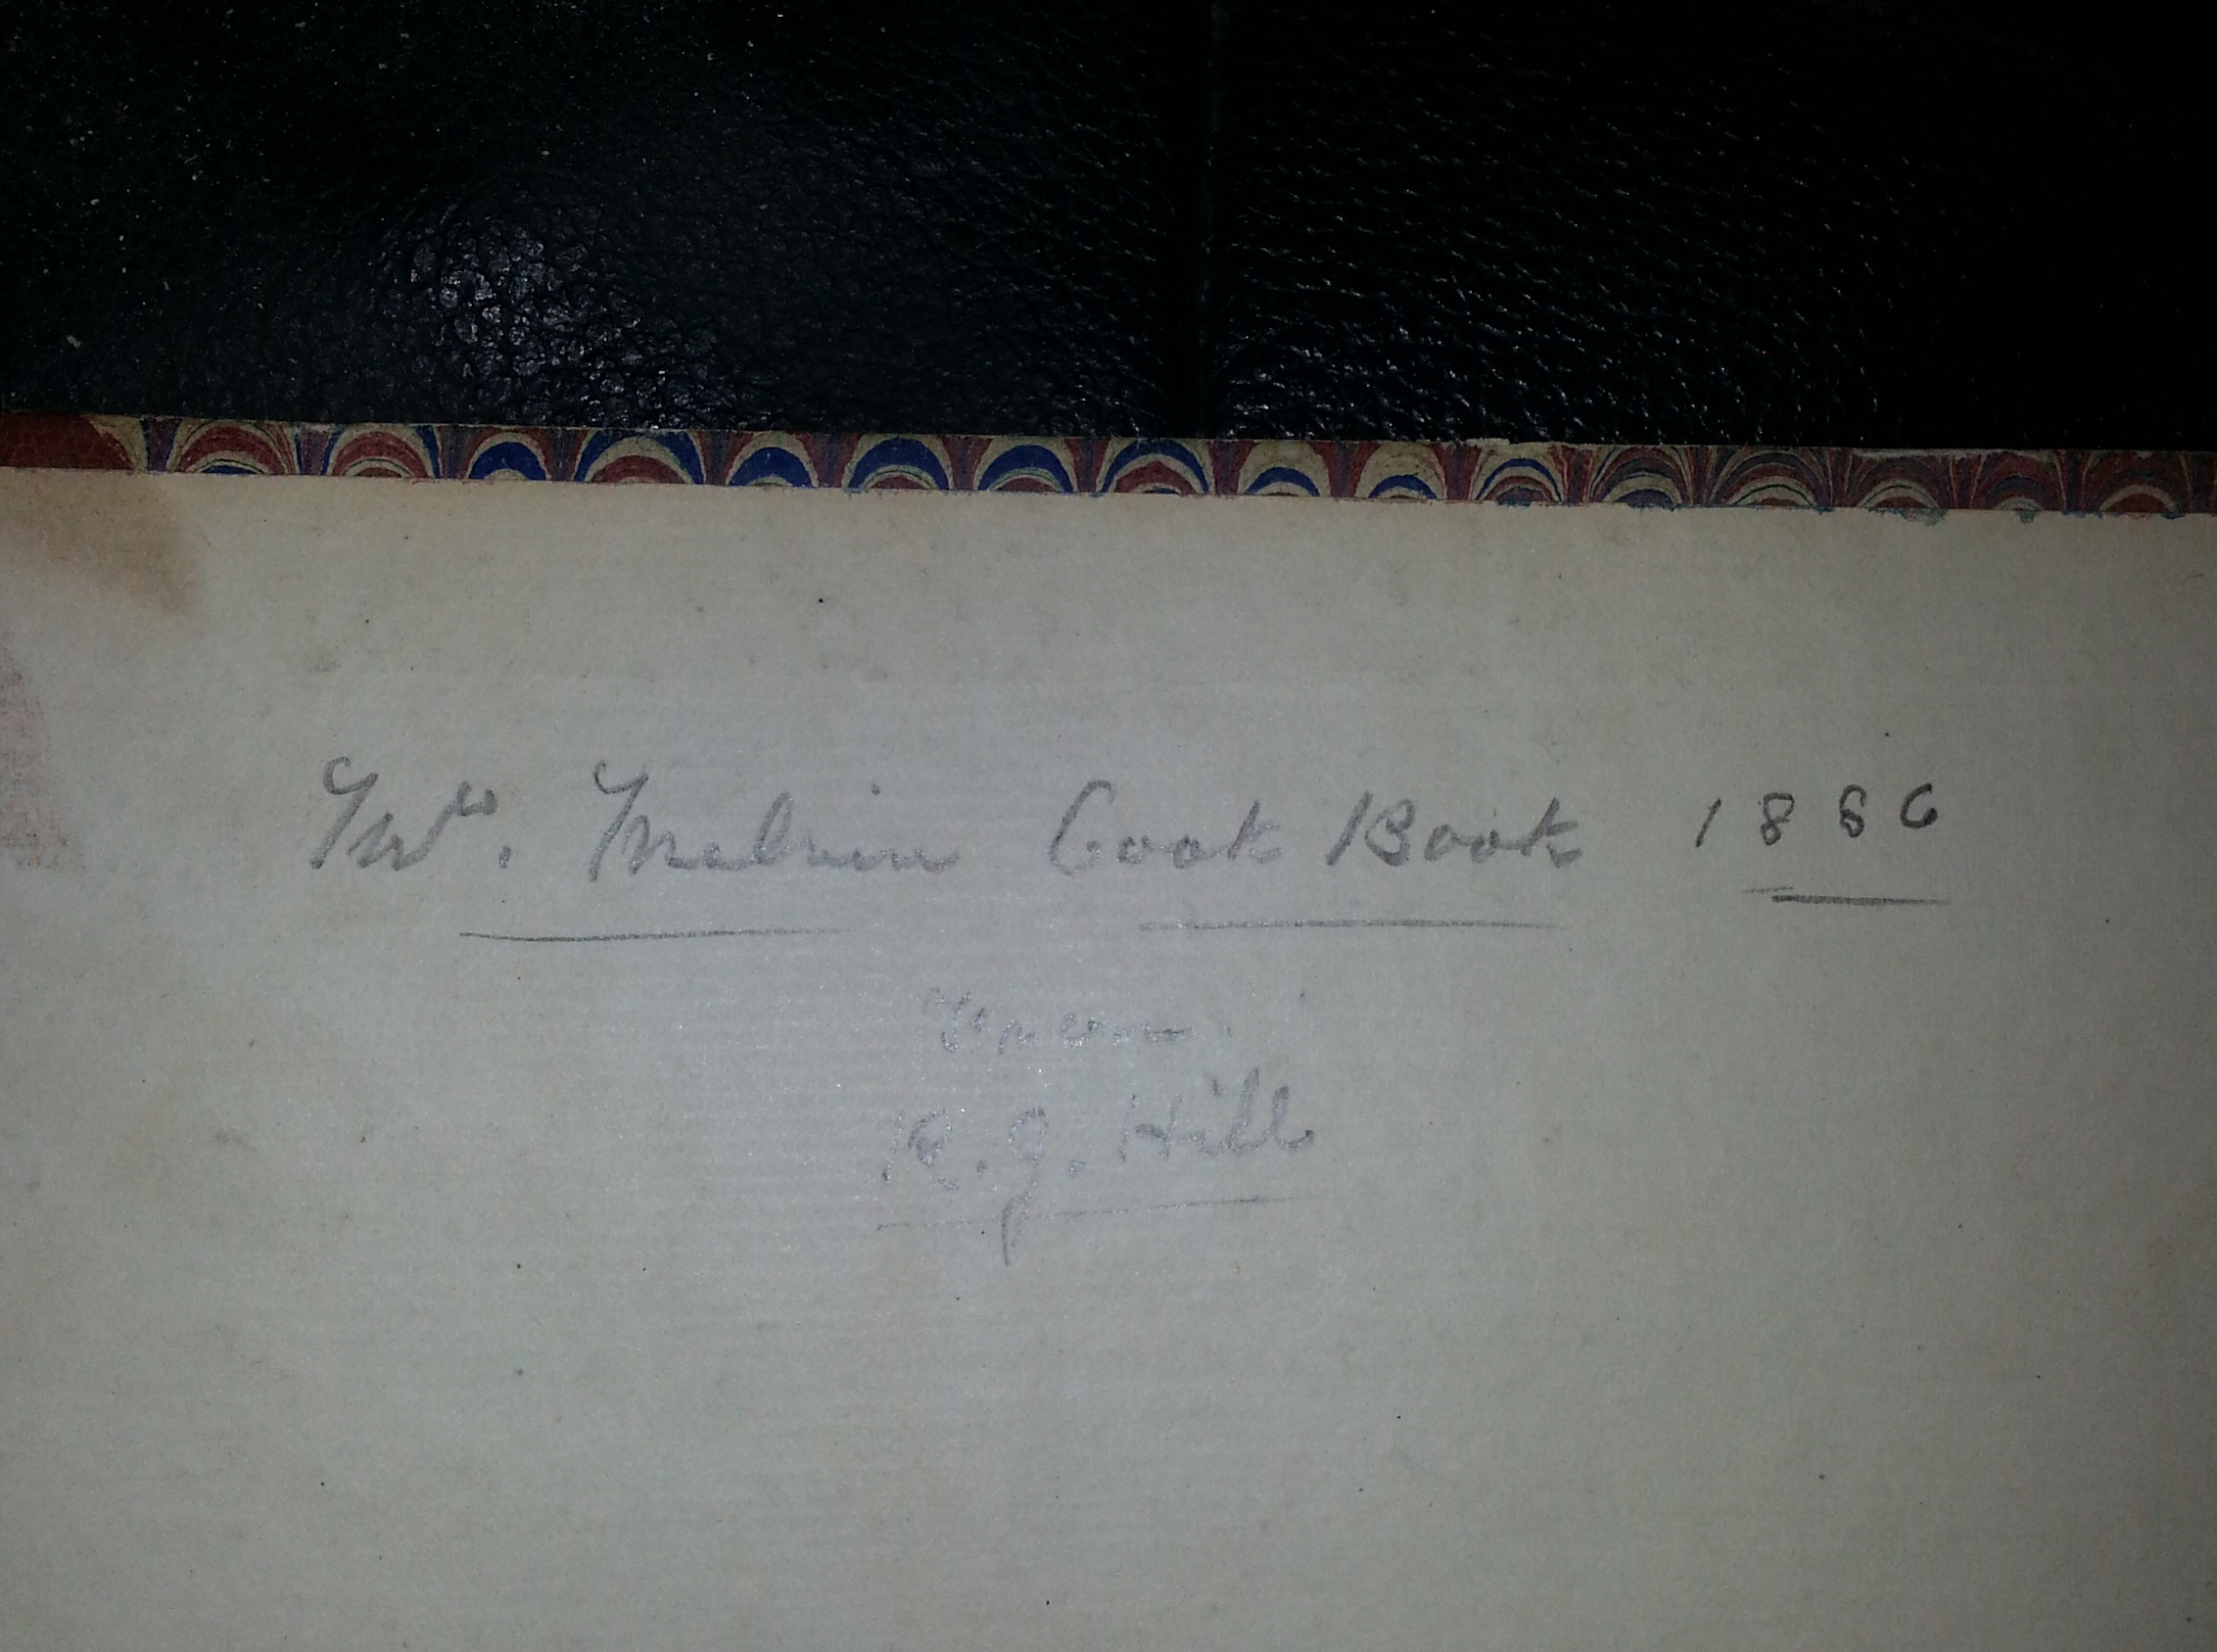 Mrs. Melvin Cook Book 1886
From
R. J. Hill